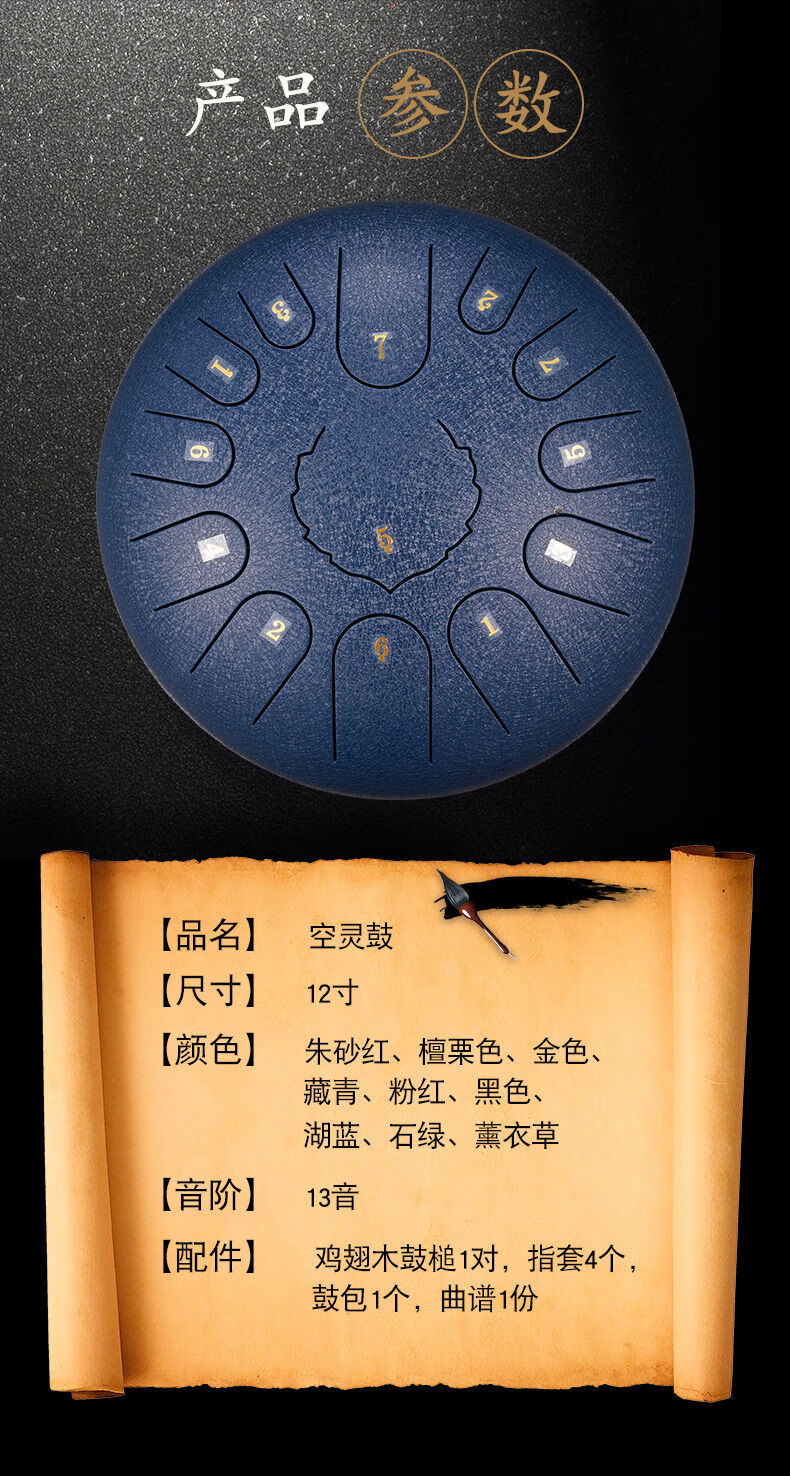 产品参数
3
7
2
1
7
6
5
4
3
5
2
6
1
【品名】 空灵鼓
【尺寸】 12寸
【颜色】 朱砂红、檀栗色、金色、
藏青、粉红、黑色、
湖蓝、石绿、薰衣草
【音阶】 13音
【配件】 鸡翅木鼓槌1对，指套4个，
鼓包1个，曲谱1份